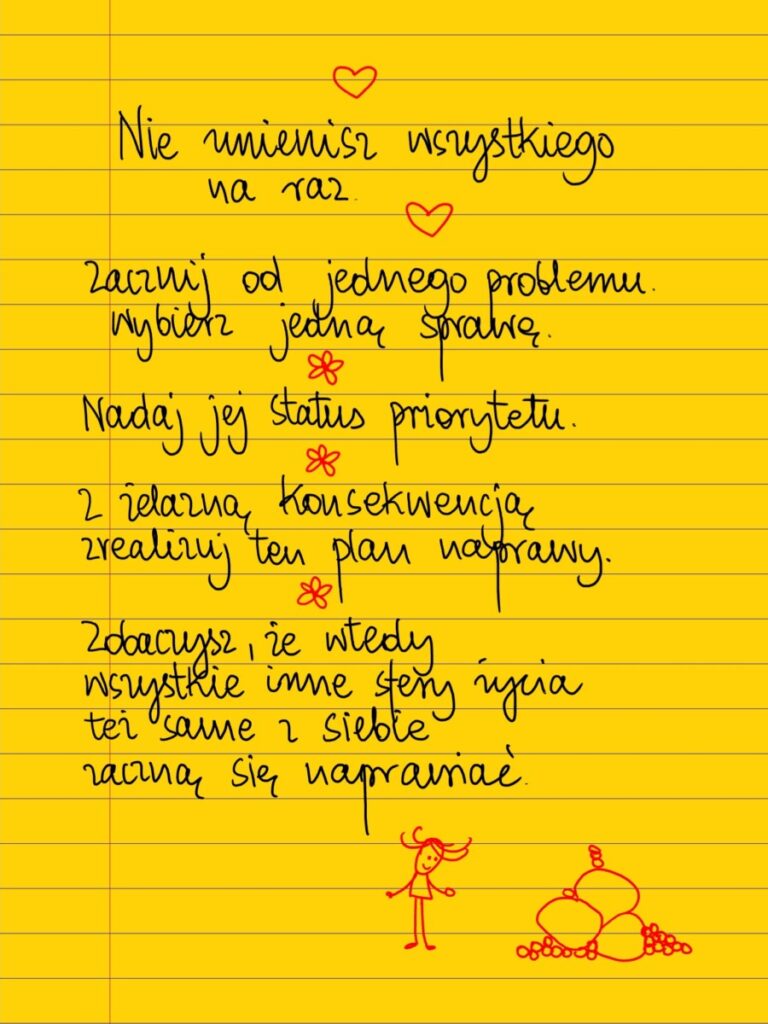 Nie zmienisz wszystkiego
na raz.
Zacznij od jednego problemu.
Wybierz jedną sprawę.
Nadaj jej status priorytetu.
Z żelazną konsekwencją
zrealizuj ten plan naprawy.
Zobaczysz, że wtedy
wszystkie inne sfery życia
też same z siebie
zaczną się naprawiać.